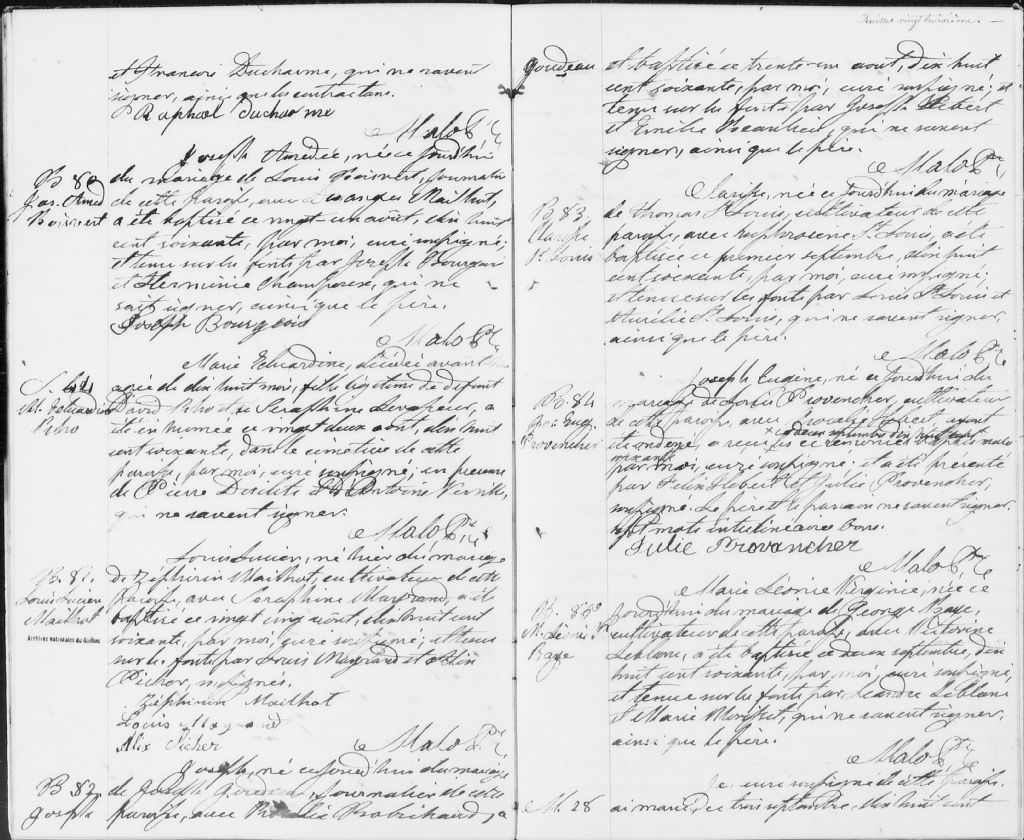 et François Ducharme, qui ne savent
signer, ainsi que les contractans.
Raphael Ducharme
Malo Ptre
B 80
Jos. Amed
Boisvert
Joseph Amedée, né ce jourd'hui
du mariage de Louis Boisvert, journalier
de cette paroisse, avec Mailhot,
a été baptisé ce vingt un août, dix huit
cent soixante, par moi, curé soussigné;
et tenu sur les fonts par Joseph Bourgeois
et Herminie qui ne
sait signer, ainsi que le père.
Joseph Bourgeois
Malo Ptre
S. 44
M. Eduardine
Marie Eduardine, décédée avant
agée de dix huit mois, fille légitime de défunt
David et de Séraphine Levasseur, a
été inhumée ce vingt deux août, dix huit
cent soixante, dans le cimetière de cette
paroisse, par moi, curé soussigné; en présence
de Pierre Désilets et Antoine
qui ne savent signer.
Malo Ptre
B. 81.
Louis Lucien
Mailhot
Archives nationales du Québec
Louis Lucien, né hier du mariage
de Zéphirin Mailhot, cultivateur de cette
paroisse, avec Séraphine Mayrand, a été
baptisé ce vingt cinq août, dix huit cent
soixante, par moi, curé soussigné; et tenu
sur les fonts par Louis Mayrand et Alix
Picher, soussignés.
Zéphirin Mailhot
Louis Mayrand
Alix Picher
Malo Ptre
B 82
Joseph
Joseph, né ce jourd'hui du mariage
de Joseph journalier de cette
paroisse, avec Robichaud, a
Feuillet vingt troisième.
Goudeau
et baptisé ce trente un août, dix huit
cent soixante, par moi, curé soussigné; et
tenu sur les fonts par Joseph Hébert
et Emilie Beaulieu, qui ne savent
signer, ainsi que le père.
Malo Ptre
B 83
Clarisse
St. Louis
Clarisse, née ce jourd'hui du mariage
de Thomas St Louis, cultivateur de cette
paroisse, avec Euphrosine St. Louis, a été
baptisée ce premier septembre, dix huit
cent soixante, par moi, curé soussigné;
et tenue sur les fonts par Louis St. Louis et
Aurélie St. Louis, qui ne savent signer,
ainsi que le père.
Malo Ptre
B. 84
Jos. Eug.
Provencher
Joseph Eugène, né ce jourd'hui du
mariage de Louis Provencher, cultivateur
de cette paroisse, avec ayant
été ondoyé, a reçu les cérémonies du baptême
ce deux septembre dix huit cent soixante
par moi, curé soussigné; et a été présenté
par Félix Hébert et Julie Provencher,
soussignée. Le père et le parrain ne savent signer.
sept mots interlinés bons.
Julie Provancher
Malo Ptre
B. 85
M. Léonie V.
Marie Léonie Virginie, née ce
jourd'hui du mariage de George
cultivateur de cette paroisse, avec Victorine
Leblanc, a été baptisée ce deux septembre, dix
huit cent soixante, par moi, curé soussigné,
et tenue sur les fonts par Léandre Leblanc
et Marie qui ne savent signer,
ainsi que le père.
Malo Ptre
M. 28
Je, curé soussigné de cette paroisse,
ai marié, ce trois septembre, dix huit cent